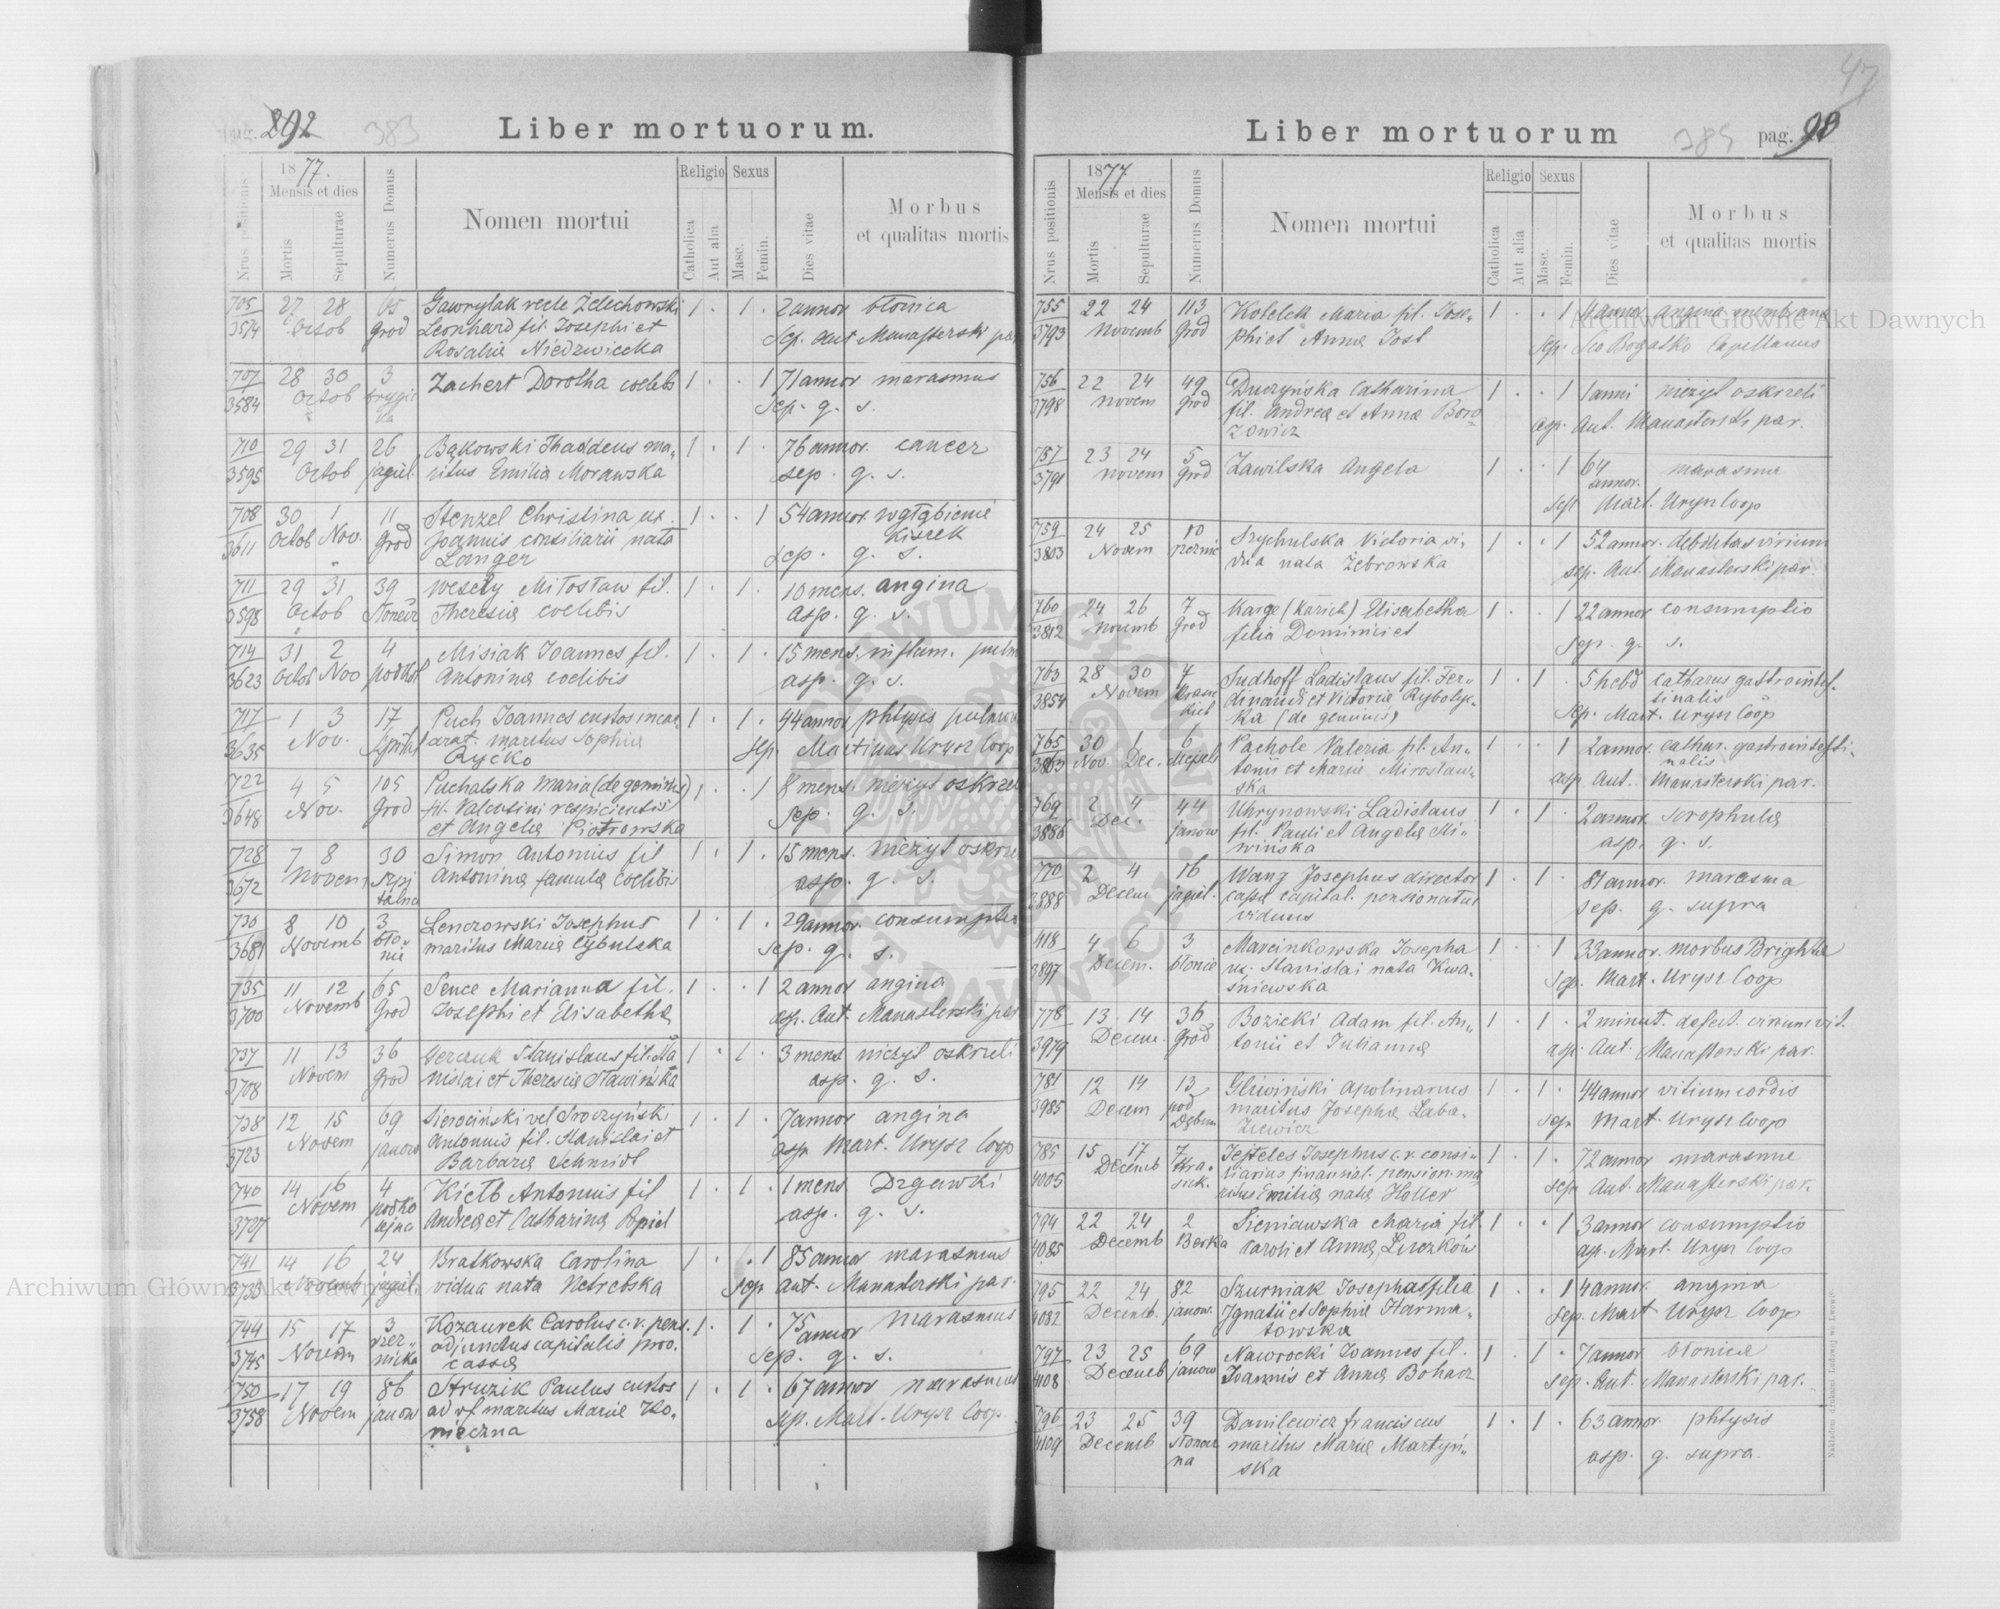 47
pag. 292 383 Liber mortuorum.
1877.
Mensis et dies
Religio Sexus
Nrus positionis Mortis Sepulturae Numerus Domus Nomen mortui Catholica Aut alia Masc. Femin. Dies vitae Morbus
et qualitas mortis
705 27 28 65 Gawrylak recte Żelechowski 1 . 1 . 2 annor błonica
3574 Octob Grod Leonhard fil. Josephi et Sep. Ant Manasterski par
Rosaliæ Niedzwiecka
707 28 30 3 Zachert Dorotha coelebs 1 . . 1 71 annor marasmus
3584 Octob Sep. q. s.
710 29 31 26 Bąkowski Thaddeus ma- 1 . 1 . 76 annor. cancer
3595 Octob jagiel. ritus Emilia Morawska sep. q. s.
708 30 1 11 Stenzel Christina ux. 1 . . 1 54 annor. wgłębienie
3611 Octob Nov. Grod Joannis consiliarii nata kiszek
Langer sep. q. s.
711 29 31 39 Wesely Miłosław fil. 1 . 1 . 10 mens. angina
3598 Octob Theresiæ coelibis asp. q. s.
714 31 2 4 Misiak Joannes fil. 1 . 1 . 15 mens. inflam. pulm
3623 Octob Nov Antoninæ coelibis asp. q. s.
717 1 3 17 Puch Joannes custos incar 1 . 1 . 44 annor phtysis pulmo
3635 Nov. arat. maritus Sophiæ Sep. Martinus Urysz Coop
Rycko
722 4 5 105 Puchalska Maria (de geminis) 1 . . 1 8 mens. nieżyt oskrzel
3648 Nov. Grod fil. Valentini respicientis Sep. q. s.
et Angelæ Piotrowska
728 7 8 30 Simon Antonius fil 1 . 1 . 15 mens. nieżyt oskrze
3672 Novem Szpi Antoninæ famulæ coelibis asp. q. s.
talna
730 8 10 3 Lenczowski Josephus 1 . 1 . 29 annor. consumptio
3681 Novemb bło- maritus Mariæ Cybulska sep. q. s.
nie
735 11 12 65 Sence Marianna fil. 1 . . 1 2 annor angina
3700 Novemb Grod Josephi et Elisabethæ asp. Ant. Manasterski par
737 11 13 36 Stanislaus fil. Sta 1 . 1 . 3 mens nieżyt oskrzeli
3708 Novem Grod nislai et Theresiæ Sławińska asp. q. s.
738 12 15 69 Sierociński vel Sroczyński 1 . 1 . 7 annor angina
3723 Novem janow Antonius fil. Stanislai et asp Mart. Urysz Coop
Barbaræ Schmidt
740 14 16 4 Kiełb Antonius fil 1 . 1 . 1 mens. Drgawki
3727 Novem Andreæ et Catharinæ asp. q. s.
741 14 16 24 Bratkowska Carolina 1 . . 1 85 annor marasmus
Novemb jagiel. vidua nata Netrebska sep Ant. Manasterski par.
744 15 17 3 Kozaurek Carolus c.r. pens. 1 . 1 . 75 annor marasmus
3745 Novem rzez- adjunctus capitalis prov. Sep. q. s.
nicka cassæ
750 17 19 86 Struzik Paulus custos 1 . 1 . 67 annor marasmus
3758 Novem janow ad rf maritus Mariæ Ko- Sep. Mart. Urysz Coop
nieczna
Liber mortuorum 385 pag. 93
1877
Mensis et dies
Religio Sexus
Nrus positionis Mortis Sepulturae Numerus Domus Nomen mortui Catholica Aut alia Masc. Femin. Dies vitae Morbus
et qualitas mortis
755 22 24 113 Kolelek Maria fil. Jose- 1 . . 1 4 annor angina membrana
3793 Novemb Grod phi et Annæ Jost Sep. Leo Bogatko Capellanus
756 22 24 49 Duczyńska Catharina 1 . . 1 1 anni nieżyt oskrzeli
3798 Novem Grod fil. Andreæ et Annæ Boro asp. Ant. Manasterski par.
zowicz
757 23 24 5 Zawilska Angela 1 . . 1 64 annor. marasmu
3791 Novem Grod Sep Mart. Urysz Coop
759 24 25 10 Szychulska Victoria vi- 1 . . 1 52 annor. debilitas virium
3803 Novem rzeźnic dua nata Zebrowska sep. Ant. Manasterski par.
760 24 26 7 Karge (Karich) Elisabetha 1 . . 1 22 annor consumptio
3812 Novemb Grod filia Dominici et Sep. q. s.
763 28 30 4 Sudhoff Ladislaus fil. Fer- 1 . 1 . 5 hebd catharus gastrointes-
3854 Novem dinandi et Victoriæ Rybolyc- tinalis
ka (de geminis) Sep. Mart. Urysz Coop
765 30 1 6 Pachole Valeria fil. An- 1 . . 1 2 annor. cathar. gastrointesti-
3863 Nov. Dec. tonii et Mariæ Mirosław- nalis
ska asp Ant. Manasterski par.
769 2 4 44 Uhrynowski Ladislaus 1 . 1 . 2 annor. scrophulæ
3886 Dec. janow fil. Pauli et Angelæ Mi- asp. q. s.
wińska
770 2 4 16 Wang Josephus director 1 . 1 . 81 annor. marasma
3888 Decem jagiel. cassæ capital. pensionatus sep. q. supra
viduus
418 4 6 3 Marcinkowska Josepha 1 . . 1 33 annor. morbus Brightii
3897 Decem. błonie ux. Stanislai nata Kwa- Sep. Mart. Urysz Coop
śniewska
778 13 14 36 Bozicki Adam fil. An- 1 . 1 . 2 minut. defect. virium vit.
3979 Decem. Grod tonii et Juliannæ asp. Ant. Manasterski par.
781 12 14 13 Gliwiński Apolinarius 1 . 1 . 44 annor vitium cordis
3985 Decem pod maritus Josephæ Laba- sep Mart. Urysz Coop
Dębem ziewicz
785 15 17 7 Jeiteles Josephus c.r. consi- 1 . 1 . 72 annor marasmu
4005 Decemb Kra- liarius finansial. pension. ma sep Ant. Manasterski par.
sick. ritus Emiliæ nata Holler
794 22 24 2 Sieniawska Maria fil. 1 . . 1 3 annor consumptio
4085 Decemb Berka Caroli et Annæ Lerczków asp. Mart. Urysz Coop
795 22 24 82 Szurniak Josepha filia 1 . . 1 4 annor. angina
4082 Decemb. janow. Ignatii et Sophiæ Harma- Sep. Mart Urysz Coop
towska
797 23 25 69 Nawrocki Joannes fil. 1 . 1 . 7 annor błonica
4108 Decemb janow Joannis et Annæ Bohacz sep. Ant. Manasterski par.
796 23 25 39 Danilewicz Franciscus 1 . 1 . 63 annor. phtysis
4109 Decemb słonecz maritus Mariæ Martyń- asp. q. supra.
na ska
Nakładem drukarni Ludowej we Lwowie.
Archiwum Główne Akt Dawnych
Archiwum Główne Akt Dawnych
ARCHIWUM GŁÓWNE AKT DAWNYCH